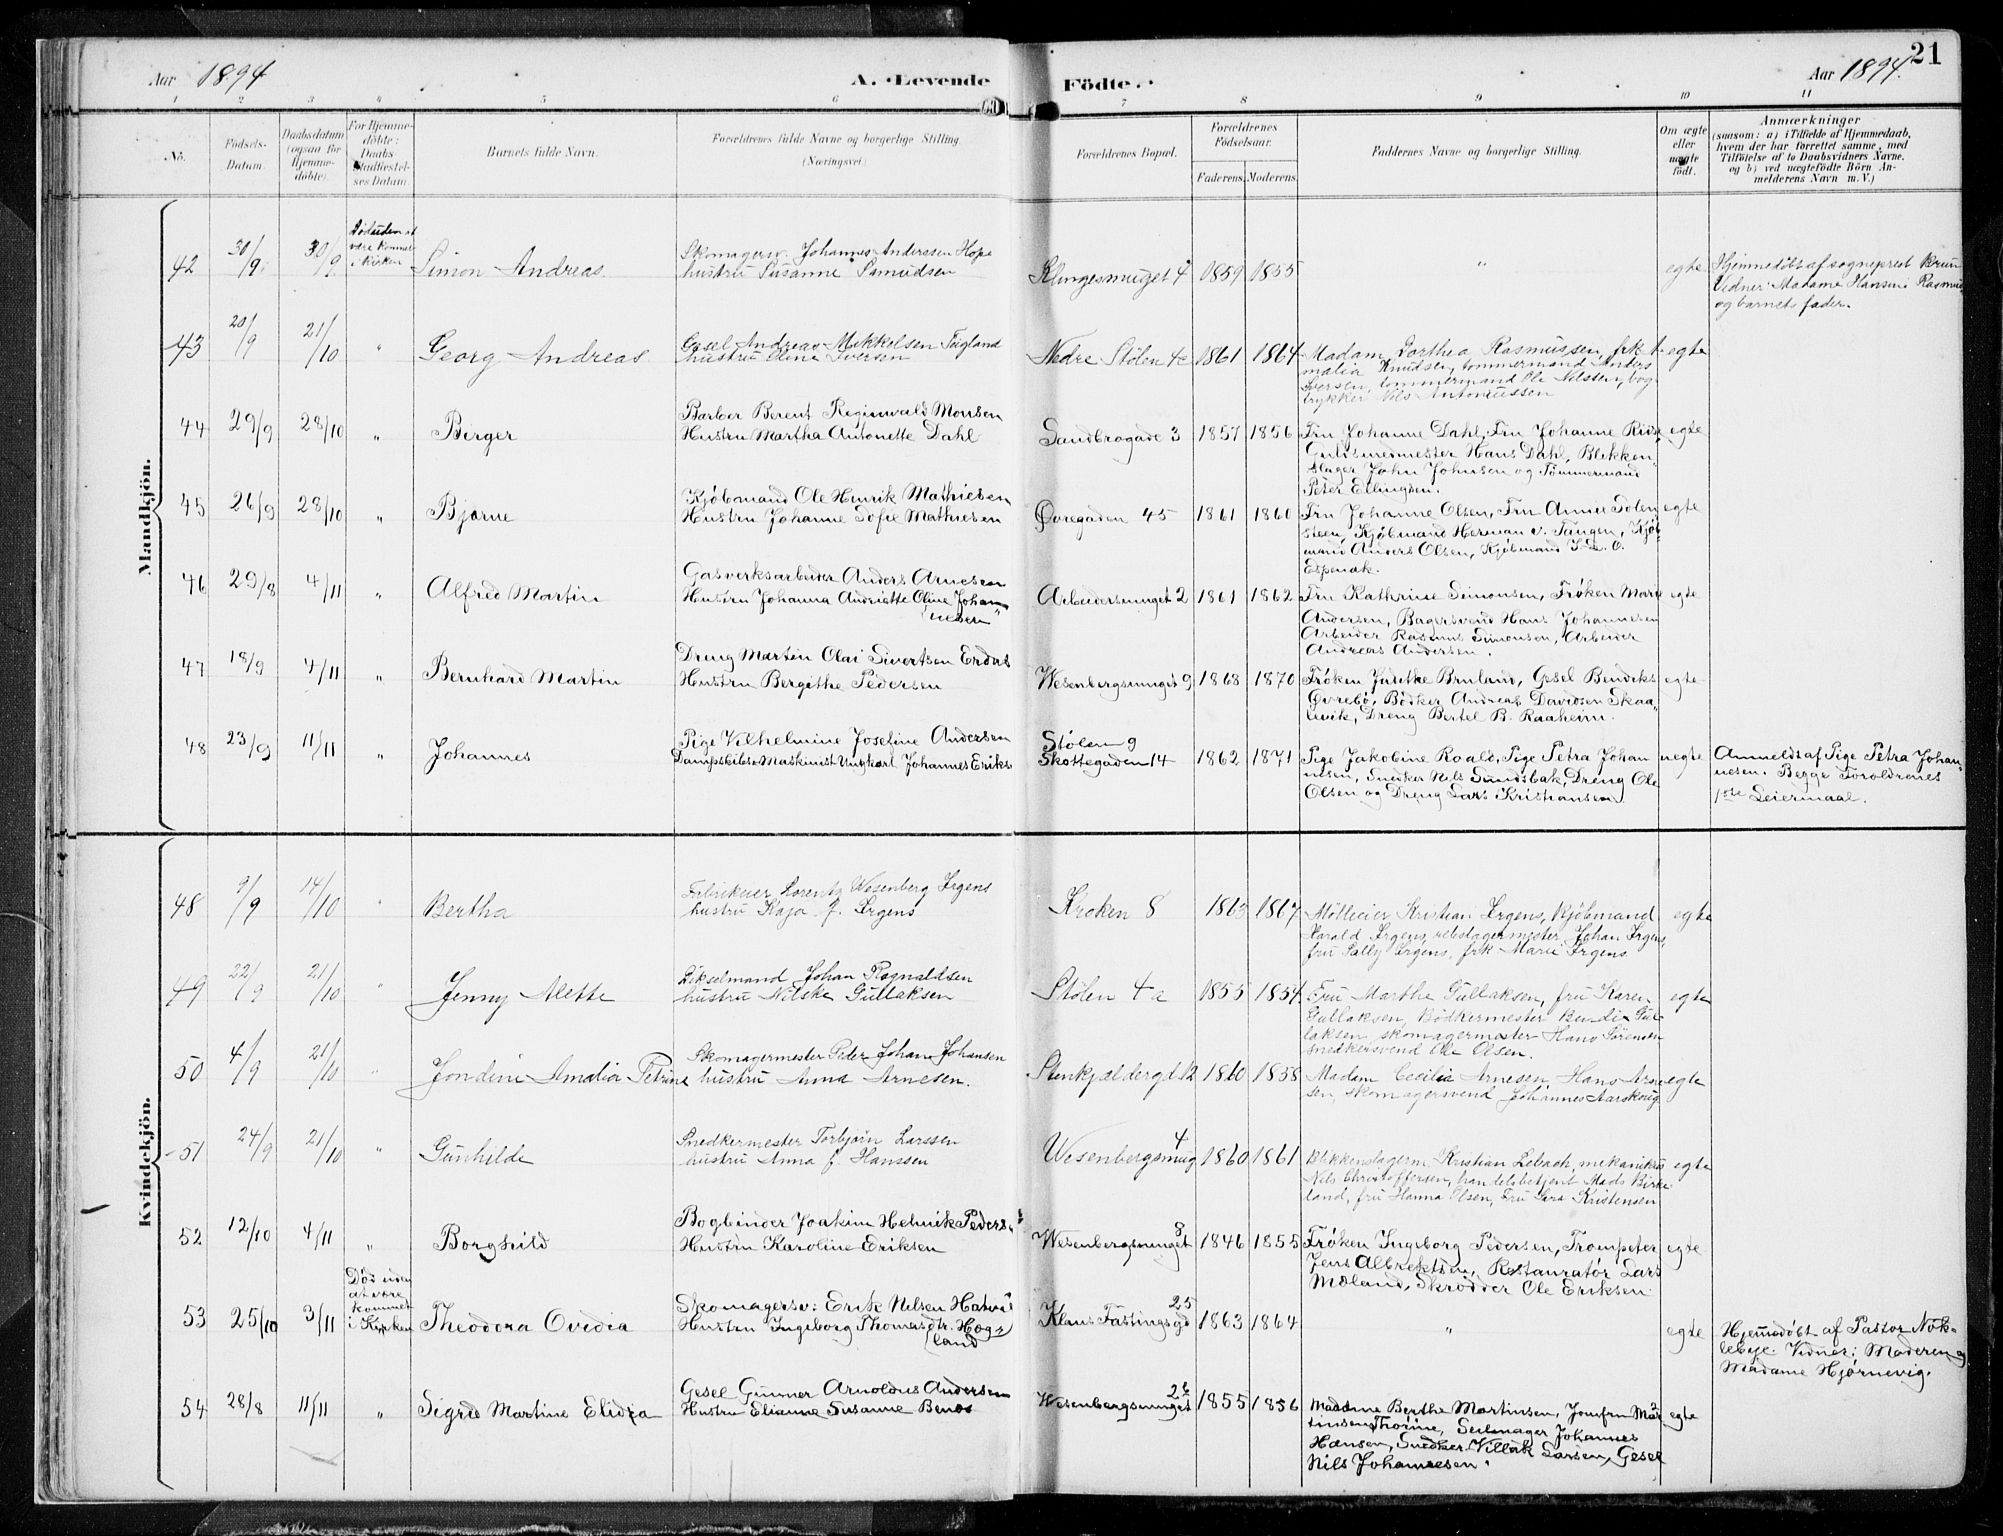 Aar 1894
A. Levende
Födte.
Aar 1894.
21
1 2 3 4 5 6 7 8 9 10 11
No.
Födsels-
Datum.
Daabsdatum
(ogsaa for
Hjemme-
döbte).
For Hjemme-
döbte:
Daabs-
Stadfæstel-
ses Datum.
Barnets fulde Navn.
Forældrenes fulde Navne og borgerlige Stilling.
(Næringsvei.)
Forældrenes Bopæl.
Forældrenes
Födselsaar.
Faderens. Moderens.
Faddernes Navne og borgerlige Stilling.
Om ægte
eller
uægte
födt.
Anmærkninger
(saasom: a) i Tilfælde af Hjemmedaab,
hvem der har forrettet samme, med
Tilföielse af to Daabsvidners Navne,
og b) ved uægtefödte Börn An-
melderens Navn m. V.)
Mandkjön.
42 30/9 30/9
Død uden at
være kommet
i kirken
Simon Andreas
Skomagersv. Johannes Anderssen Hope
hustru Susanne Samudsen
Klingesmuget 4 1859 1855 " egte
Hjemmedøbt af sogneprest Brun
Vidner: Madame Hansine Rasmus
og barnets fader.
43 20/9 21/10 " Georg Andreas
Gesel Andreas Mikkelsen Tugland
hustru Oline Iversen
Nedre Stølen 4c 1861 1864
Madam Dorthea Rasmussen, frk A-
malia Knudsen, tømmermand Anders
Iversen, tømmermand Ole Nilssen, bog-
trykker Nils Antoniussen
egte
44 29/9 28/10 " Birger
Barber Berent Reginwald Monsen
Hustru Martha Antonette Dahl
Sandbrogade 3 1857 1856
Fru Johanne Dahl, Fru Johanne Riise
Guldsmedmester Hans Dahl, Blikken-
slager John Johnsen og Tømmermand
Peter Ellingsen.
egte
45 26/9 28/10 " Bjarne
Kjøbmand Ole Henrik Mathiesen
Hustru Johanne Sofie Mathiesen
Øvregaden 45 1861 1860
Fru Johanne Olsen, Fru Anna Tolen
steen, Kjøbmand Herman v. Tangen, Kjøb
mand Anders Olsen, Kjøbmand J. L. O.
Espenak.
egte
46 29/8 4/11 " Alfred Martin
Gasverksarbeider Anders Arnesen
Hustru Johanna Andriette Oline Johan-
nesen
Arbeidersmuget 2 1861 1862
Fru Kathrine Simonsen, Frøken Marie
Andersen, Bagersvend Hans Johannesen
Arbeider Rasmus Simonsen, Arbeider
Andreas Andersen.
egte
47 18/9 4/11 " Bernhard Martin
Dreng Martin Olai Sivertsen Erdal
Hustru Bergithe Pedersen
Wesenbergsmuget 9 1868 1870
Frøken Juditke Bruland, Gesel Bendiks
Øvrebø, Bødker Andreas Davidsen Skaa-
levik, Dreng Bertel B. Raaheim.
egte
48 23/9 11/11 " Johannes
Pige Vilhelmine Josefine Andersen
Dampskibs-Maskinist Ungkarl Johannes Eriks
Stølen 9
Skottegaden 14 1862 1871
Pige Jakobine Roald, Pige Petra Johan
nesen, Snedker Nils Sundsbak, Dreng Ole
Olsen og Dreng Lars Kristiansen
uegte
Anmeldt af Pige Petra Johan-
nesen. Begge Forældrenes
1ste Leiermaal.
Kvindekjön.
48 9/9 14/10 " Bertha
Fabrikeier Lorentz Wesenberg Irgens
hustru Kaja f. Irgens
Kroken 8 1863 1867
Mølleeier Kristian Irgens, Kjøbmand
Harald Irgens, rebslagermester Johan Irgens,
fru Sally Irgens, frk Marie Irgens
egte
49 22/9 21/10 " Jenny Alette
Bikselmand Johan Ragnaldsen
hustru Nilske Gullaksen
Stølen 4a 1855 1854
Fru Marthe Gullaksen, fru Karen
Gullaksen, Bødkermester Bendix Gul-
laksen skomagermester Hans Sørensen
snedkersvend Ole Olsen.
egte
50 4/9 21/10 " Jondine Amalia Petrine
Skomagermester Peder Johan Johansen
hustru Anna Arnesen.
Stenkjældergd 12 1860 1858
Madam Cecilia Arnesen, Hans Arne
sen, skomagersvend Johannes Aarskoug
egte
51 24/9 21/10 " Gunhilde
Snedkermester Torbjørn Larssen
hustru Anna f. Hanssen
Wesenbergsmug 4 1860 1861
Blikkenslagerm. Kristian Lebach, mekanikus
Nils Christoffersen, handelsbetjent Mads Birke
land, fru Hanna Olsen, Fru Sara Kristensen
egte
52 12/10 4/11 " Borghild
Bogbinder Joakim Helmik Peders.
Hustru Karoline Eriksen
Wesenbergsmuget 8 1846 1855
Frøken Ingeborg Pedersen, Trompeter
Jens Albrektsen, Restauratør Lars
Mæland, Skrødder Ole Eriksen
egte
53 25/10 3/11
Død uden
at være
kommet
i Kirken
Theodora Ovidia
Skomagersv: Erik Nilsen Hatvi
Hustru Ingeborg Thomasdtr. Hog-
land
Klaus Fastingsgd 25 1863 1864 " egte
Hjemmedøbt af Pastor Nøk-
lebye. Vidner: Moderen og
Madame Hjørnevig.
54 28/8 11/11 " Sigrid Martine Elidia
Gesel Gunner Arnoldus Andersen
Hustru Elianne Susanne Benes
Wesenbergsmuget 26 1855 1856
Madame Berthe Martinsen, Jomfru Mar
tinsen Thorine, Seilmager Johannes
Hansen, Snedker Villak Larsen, Gesel
Nils Johannesen.
egte